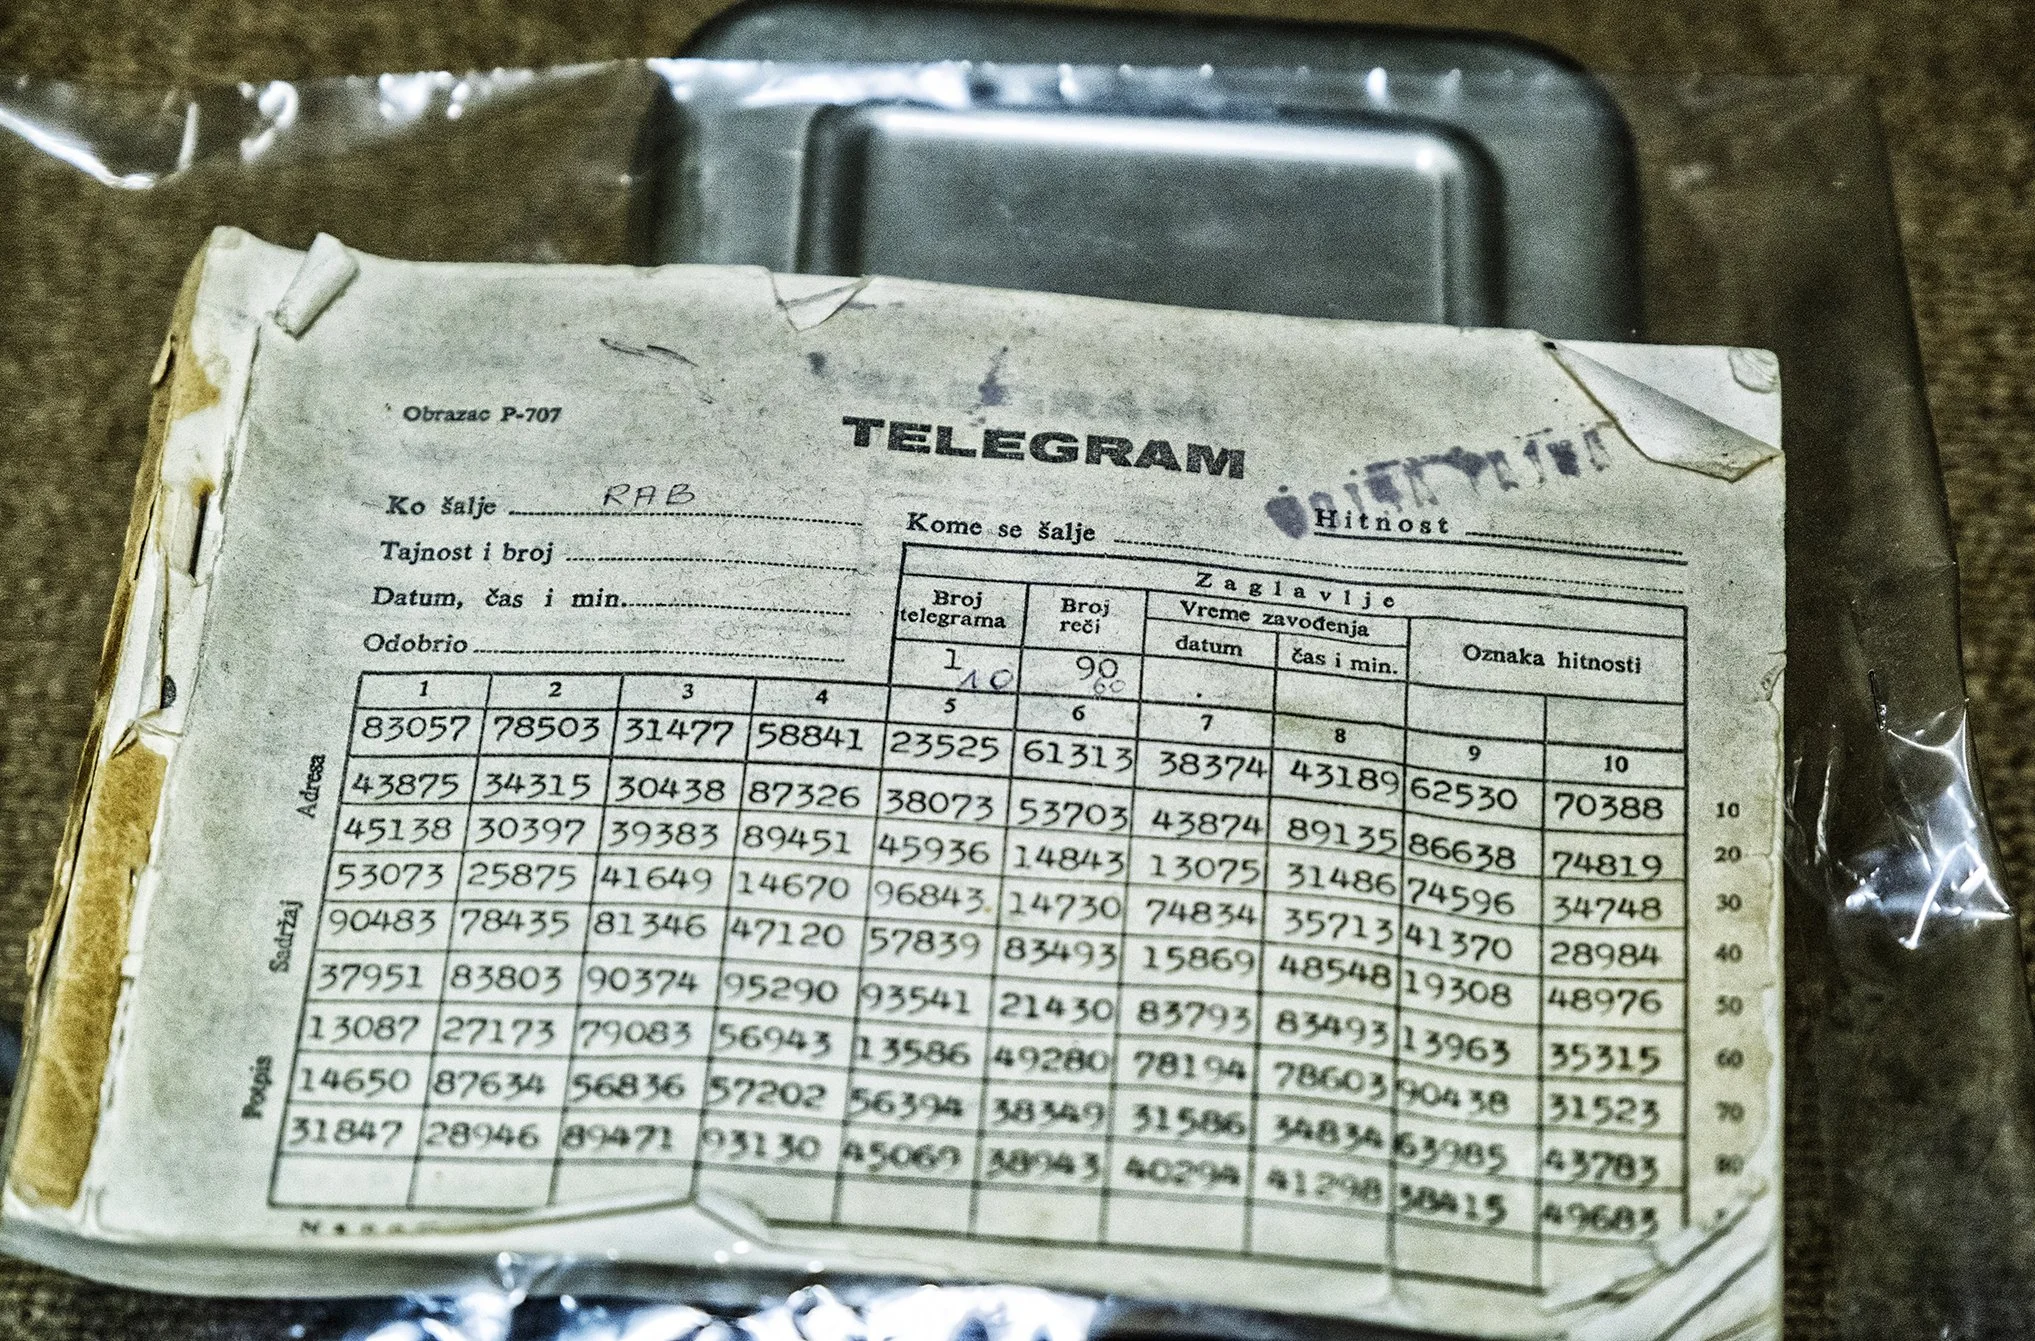 Obrazac P-707
TELEGRAM
Ko šalje RAB
Kome se šalje
Hitnost
Tajnost i broj
Datum, čas i min.
Odobrio
Zaglavlje
Broj telegrama
Broj reči
Vreme zavođenja
datum
čas i min.
Oznaka hitnosti
1 90
10 60
1 2 3 4 5 6 7 8 9 10
83057 78503 31477 58841 23525 61313 38374 43189 62530 70388 10
43875 34315 30438 87326 38073 53703 43874 89135 86638 74819 20
45138 30397 39383 89451 45936 14843 13075 31486 74596 34748 30
53073 25875 41649 14670 96843 14730 74834 35713 41370 28984 40
90483 78435 81346 47120 57839 83493 15869 48548 19308 48976 50
37951 83803 90374 95290 93541 21430 83793 83493 13963 35315 60
13087 27173 79083 56943 13586 49280 78194 78603 90438 31523 70
14650 87634 56836 57202 56394 38349 31586 34834 63985 43783 80
31847 28946 89471 93130 45069 38943 40294 41298 38415 49683
Adresa
Sadržaj
Potpis